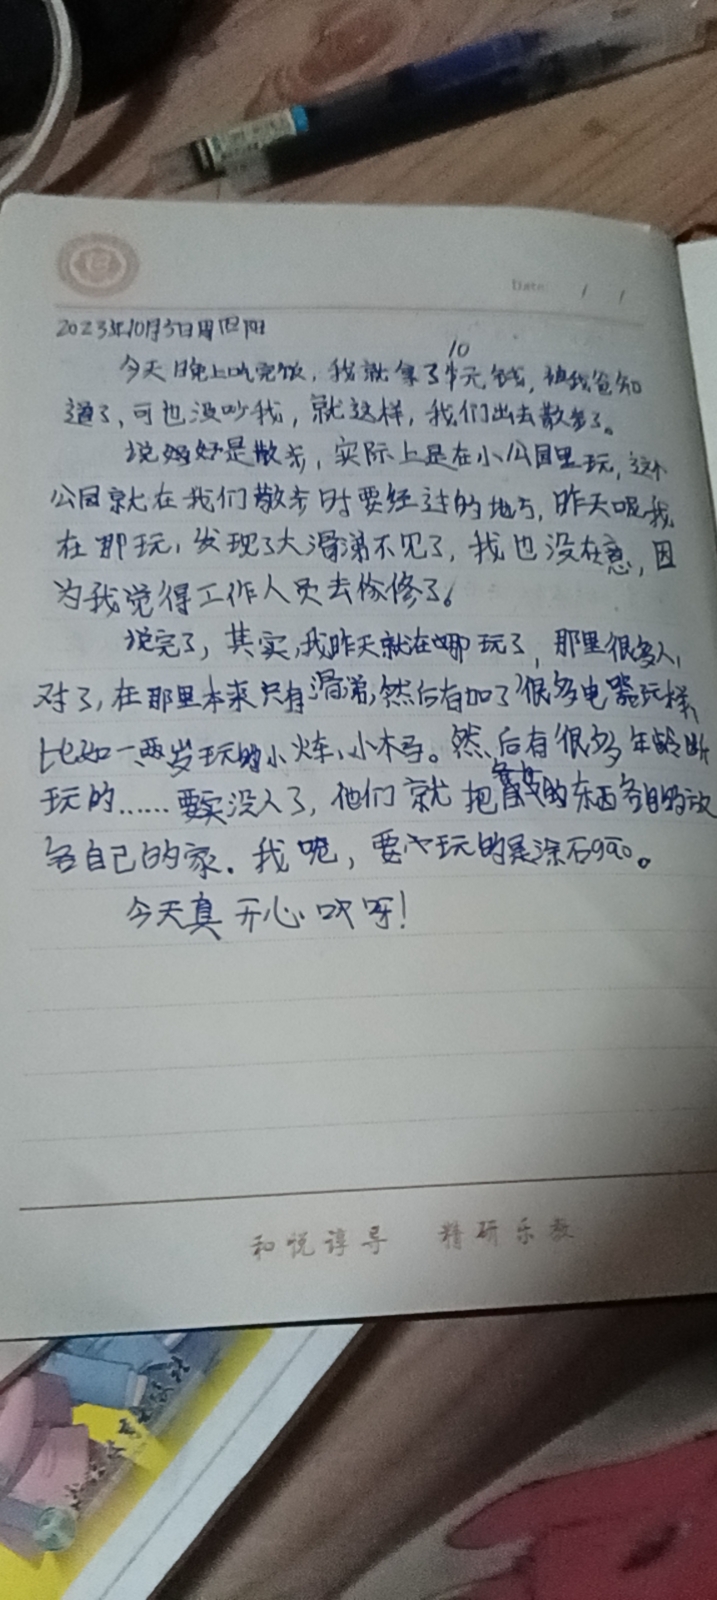 Date: / /
2023年10月5日周四阴
今天晚上吃完饭，我就拿了10元钱，被我爸知
道了，可也没吵我，就这样，我们出去散步了。
说好是散步，实际上是在小公园里玩，这个
公园就在我们散步时要经过的地方，昨天呢我
在那玩，发现了大滑梯不见了，我也没在意，因
为我觉得工作人员去修了。
说完了，其实，我昨天就在哪玩了，那里很多人，
对了，在那里本来只有滑梯，然后有加了很多电器玩样，
比如一两岁玩的小火车、小木马。然后有很多年龄
玩的……要实没人了，他们就把的东西各自的放
各自己的家．我呢，要玩的是涂石gao。
今天真开心哎呀！
和悦谆导 精研乐教